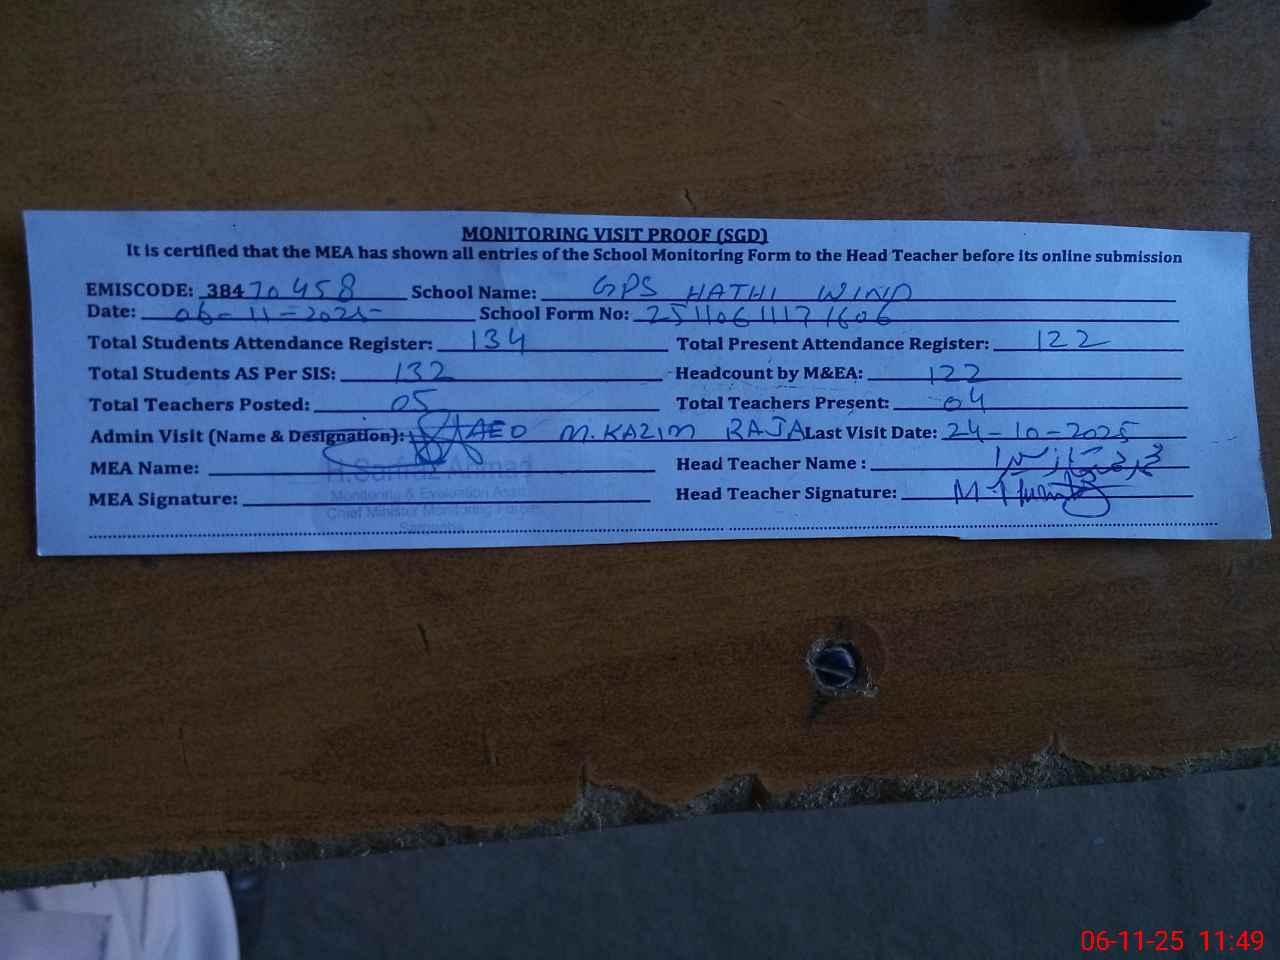 MONITORING VISIT PROOF (SGD)
It is certified that the MEA has shown all entries of the School Monitoring Form to the Head Teacher before its online submission
EMISCODE: 38470458 School Name: GPS HATHI WIND
Date: 06-11-2025 School Form No:
Total Students Attendance Register: 134 Total Present Attendance Register: 122
Total Students AS Per SIS: 132 Headcount by M&EA: 122
Total Teachers Posted: 05 Total Teachers Present: 04
Admin Visit (Name & Designation): AEO M.KAZIM RAJA Last Visit Date: 24-10-2025
MEA Name: Head Teacher Name :
MEA Signature: Head Teacher Signature:
Monitoring & Evaluation
Chief Minister Monitoring
06-11-25 11:49